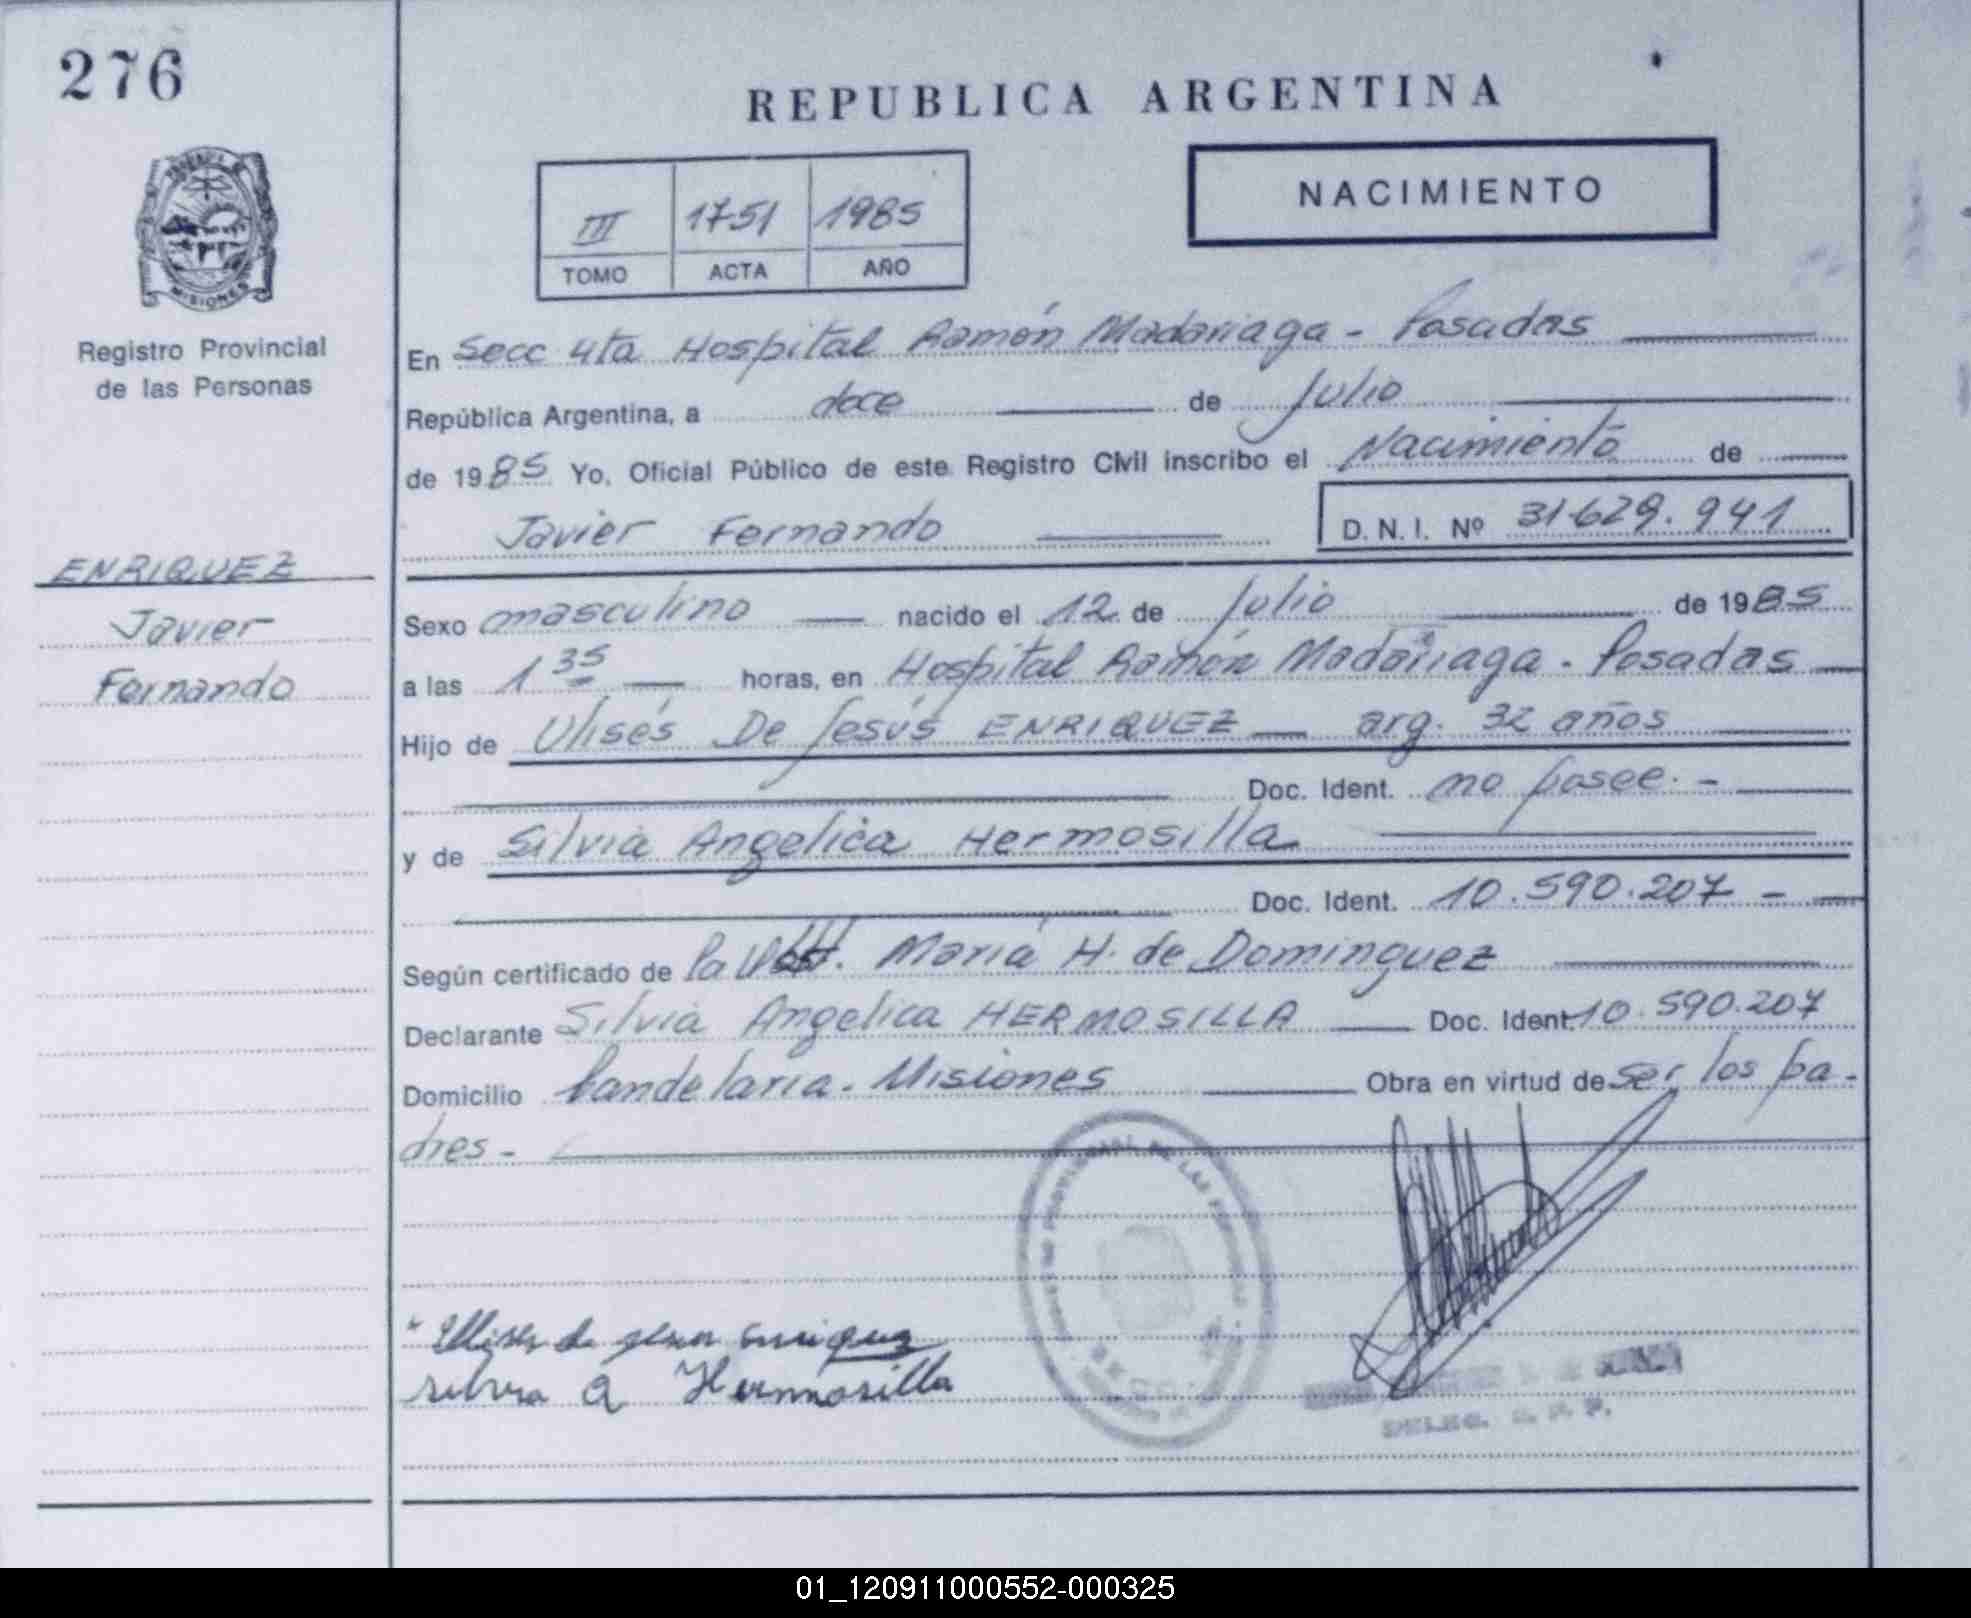 276
REPUBLICA ARGENTINA
NACIMIENTO
III 1751 1985
TOMO ACTA AÑO
MISIONES
Registro Provincial
de las Personas
En Secc 4ta Hospital Ramón Madariaga - Posadas
República Argentina, a doce de Julio
de 1985 Yo, Oficial Público de este Registro Civil inscribo el Nacimiento de
Javier Fernando D.N.I. Nº 31.629.941
ENRIQUEZ
Javier
Fernando
Sexo masculino nacido el 12 de Julio de 1985
a las 1 35 horas, en Hospital Ramón Madariaga - Posadas
Hijo de Ulises De Jesús ENRIQUEZ arg. 32 años
Doc. Ident. no posee. -
y de Silvia Angelica Hermosilla
Doc. Ident. 10.590.207 -
Según certificado de la María H. de Dominguez
Declarante Silvia Angelica HERMOSILLA Doc. Ident. 10.590.207
Domicilio Candelaria - Misiones Obra en virtud de ser los pa-
dres -
Ulises de Jesus Enriquez
silvia A Hermosilla
DELEG. R. P. P.
01_120911000552-000325